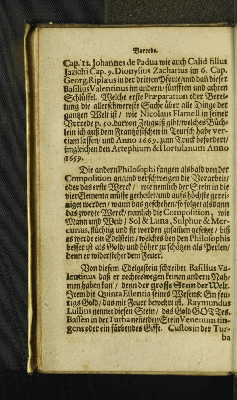 Vorrede.
Cap. 11. Johannes de Padua wie auch Calid filius
Jazichi Cap. 9. Dionysius Zacharius im 6. Cap.
Georg. Riplæus in der dritten Pforte/ und dañ dieser
Basilius Valentinus im andern/ fünfften und achten
Schlüssel. Welche erste Præparation oder Berei-
tung die allerschwereste Sache über alle Dinge der
gantzen Welt ist / wie Nicolaus Flamell in seiner
Vorrede p. 50. darvon Zeugnüß gibt/ welches Büch-
lein ich auß dem Frantzösischen in Teutsch habe ver-
tieren lassen/ und Anno 1669. zum Truck befördert/
imgleichen den Artephium & Hortulanum Anno
1659.
Die andern Philosophi fangen alsbalt von der
Composition an/ und verschweigen die Præparation/
oder das erste Werck / wie nemlich der Stein in die
vier Elementa müsse getheilet und auffs höchste gerei-
niget werden / wann das geschehen/ so folget alsdann
das zweyte Werck/ nemlich die Composition, wie
Mann und Weib / Sol & Luna, Sulphur & Mer-
curius, flüchtig und fix werden zusamen gesetzet / biß
es werde ein Edelstein/ welches den den Philosophis
besser ist als Gold/ und höher zuschätzen als Perlen/
denn er widerstehet dem Feuer.
Von diesem Edelgestein schreibt Basilius Va-
lentinus daß er rechtswegen keinen andern Nah-
men haben kan / denn der grosse Stein der Welt.
Item die Quinta Essentia seines Wesens: Ein feu-
rigs Gold/ das mit Feuer bewehrt ist. Raymundus
Lullius nennet diesen Stein / das Gold GOTTes.
Basten in der Turba nennet den Stein Venenum tin-
gens oder ein färbendes Gifft. Custos in der Tur-
ba